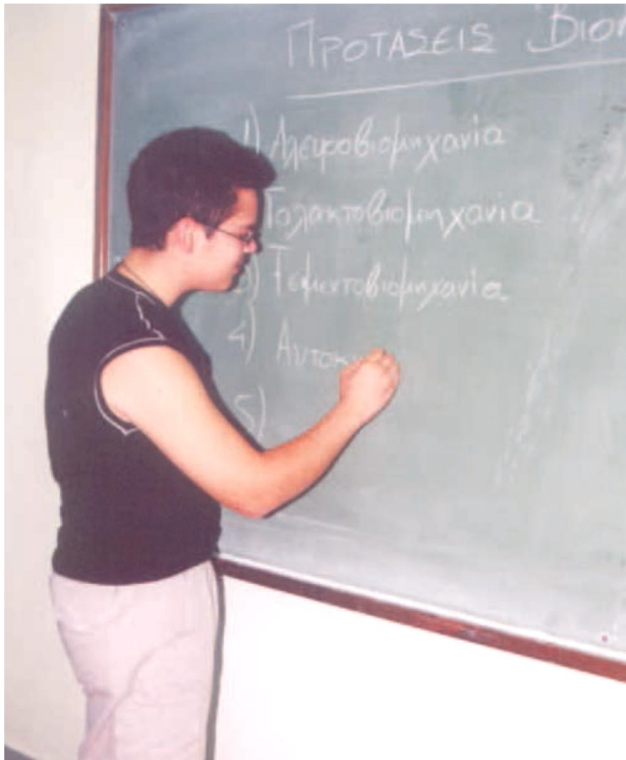 ΠΡΟΤΑΣΕΙΣ
1) Αλευροβιομηχανία
Γαλακτοβιομηχανία
3) Τσιμεντοβιομηχανία
4)
5)